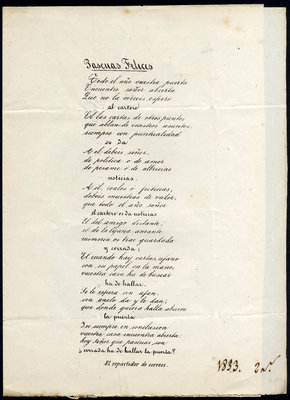 Pascuas Felices
Todo el año vuestra puerta
Encuentro, señor, abierta
Que no la cerreis espero
al cartero
El las cartas de otros puntos,
que ablan de vuestros asuntos,
siempre con puntualidad
os da
A el debeis, señor,
de politica ó de amor
de pesame ó de albricias
noticias.
A él, reales ó ficticias,
debeis muestras de valor,
que todo el año señor
El cartero os da noticias
El del amigo distante;
el de la lejana amante
memoria os trae guardada
y cerrada;
El cuando hay cartas, ufano
con su papel en la mano,
vuestra casa ha de buscar
ha de hallar.
Se le espera con afan
con anelo da y le dan;
que donde quiera halla abierta
la puerta
Y se siempre en conclusion
vuestra casa encuentra abierta
hoy señor que pascuas, son
¿cerrada ha de hallar la puerta?
El repartidor de correos.
1883. 2